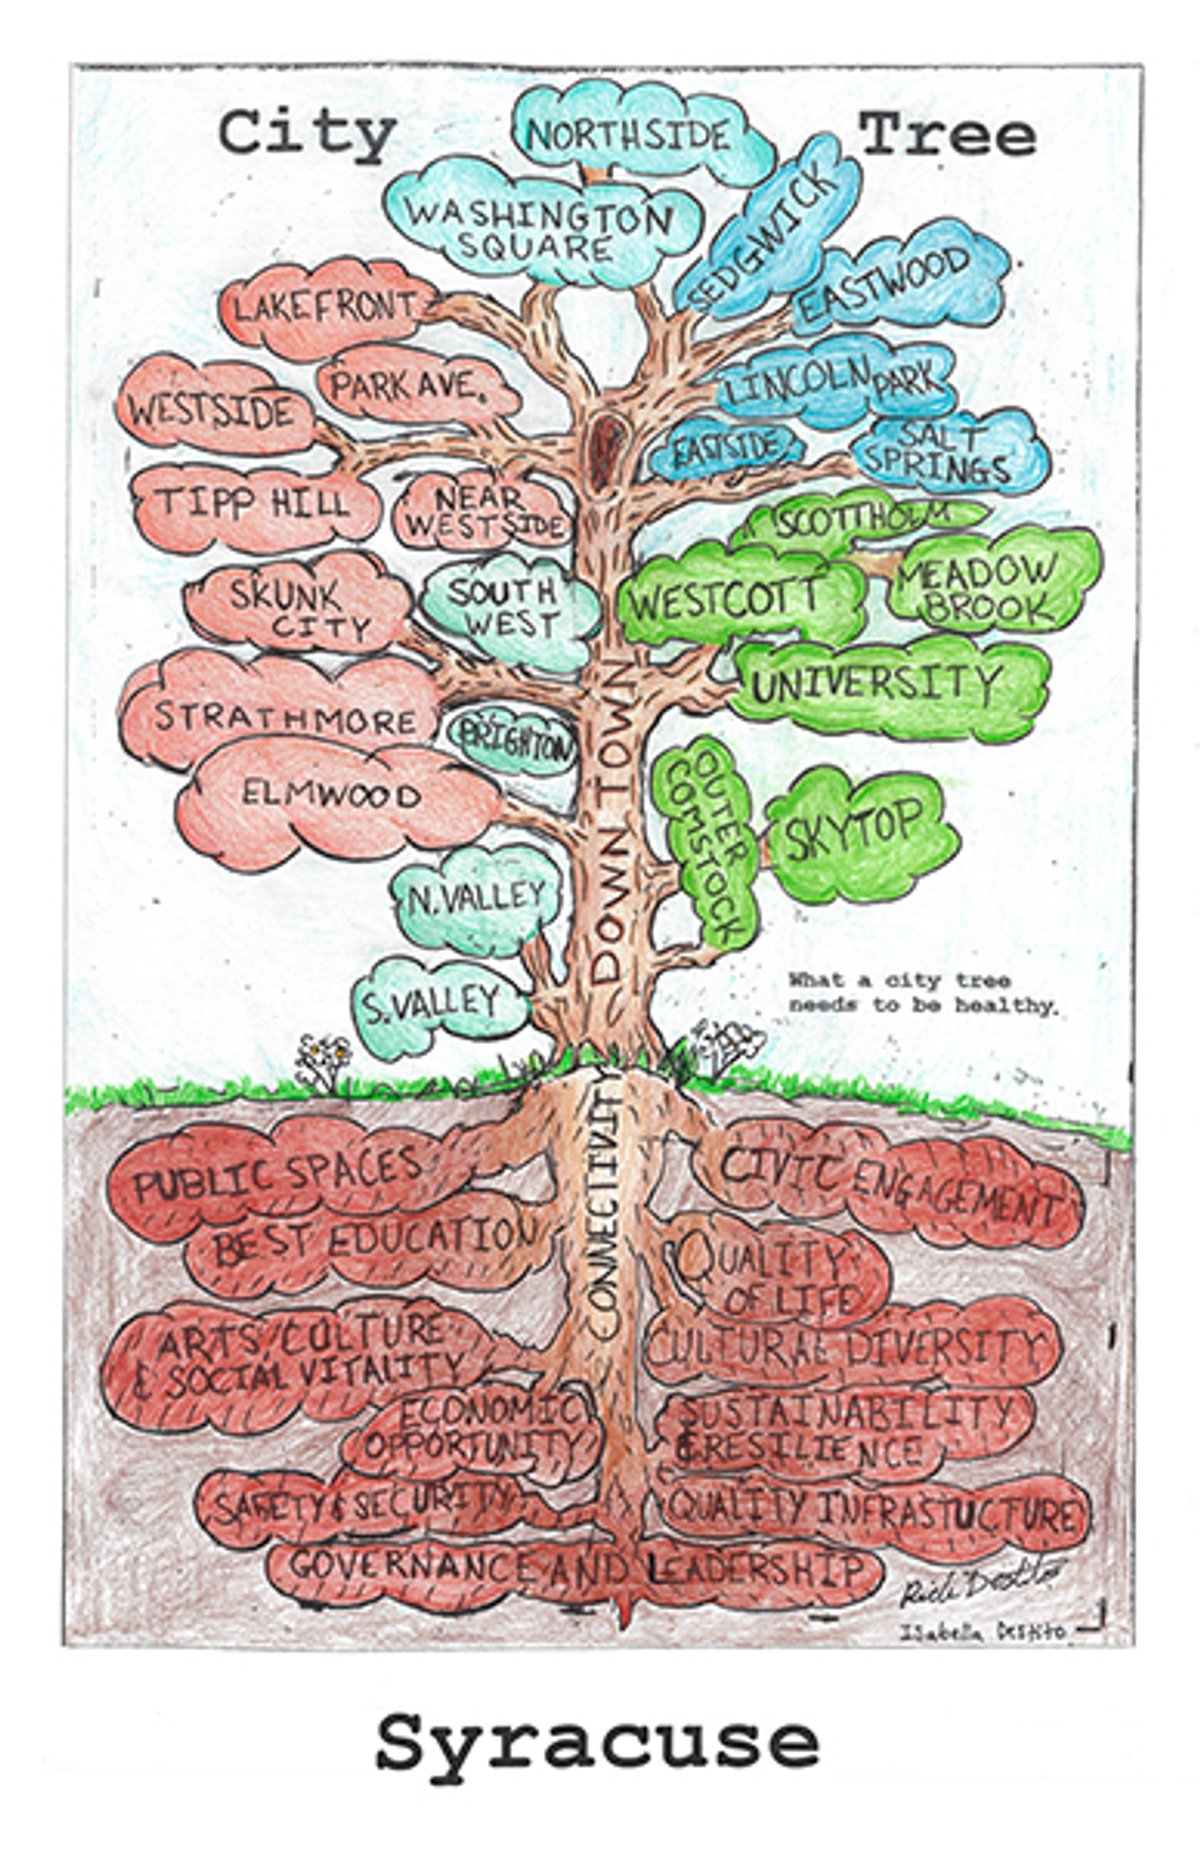 City Tree
NORTHSIDE
WASHINGTON
SQUARE
SEDGWICK
EASTWOOD
LAKEFRONT
PARK AVE.
WESTSIDE
LINCOLN PARK
EASTSIDE
SALT
SPRINGS
TIPP HILL
NEAR
WESTSIDE
SCOTTHOLM
WESTCOTT
MEADOW
BROOK
SKUNK
CITY
SOUTH
WEST
UNIVERSITY
STRATHMORE
BRIGHTON
ELMWOOD
OUTER
COMSTOCK
SKYTOP
DOWNTOWN
N. VALLEY
S. VALLEY
What a city tree
needs to be healthy.
CONNECTIVITY
PUBLIC SPACES
CIVIC ENGAGEMENT
BEST EDUCATION
QUALITY
OF LIFE
ARTS/CULTURE
& SOCIAL VITALITY
CULTURAL DIVERSITY
ECONOMIC
OPPORTUNITY
SUSTAINABILITY
& RESILIENCE
SAFETY & SECURITY
QUALITY INFRASTUCTURE
GOVERNANCE AND LEADERSHIP
Rich Destito
Isabella Destito
Syracuse